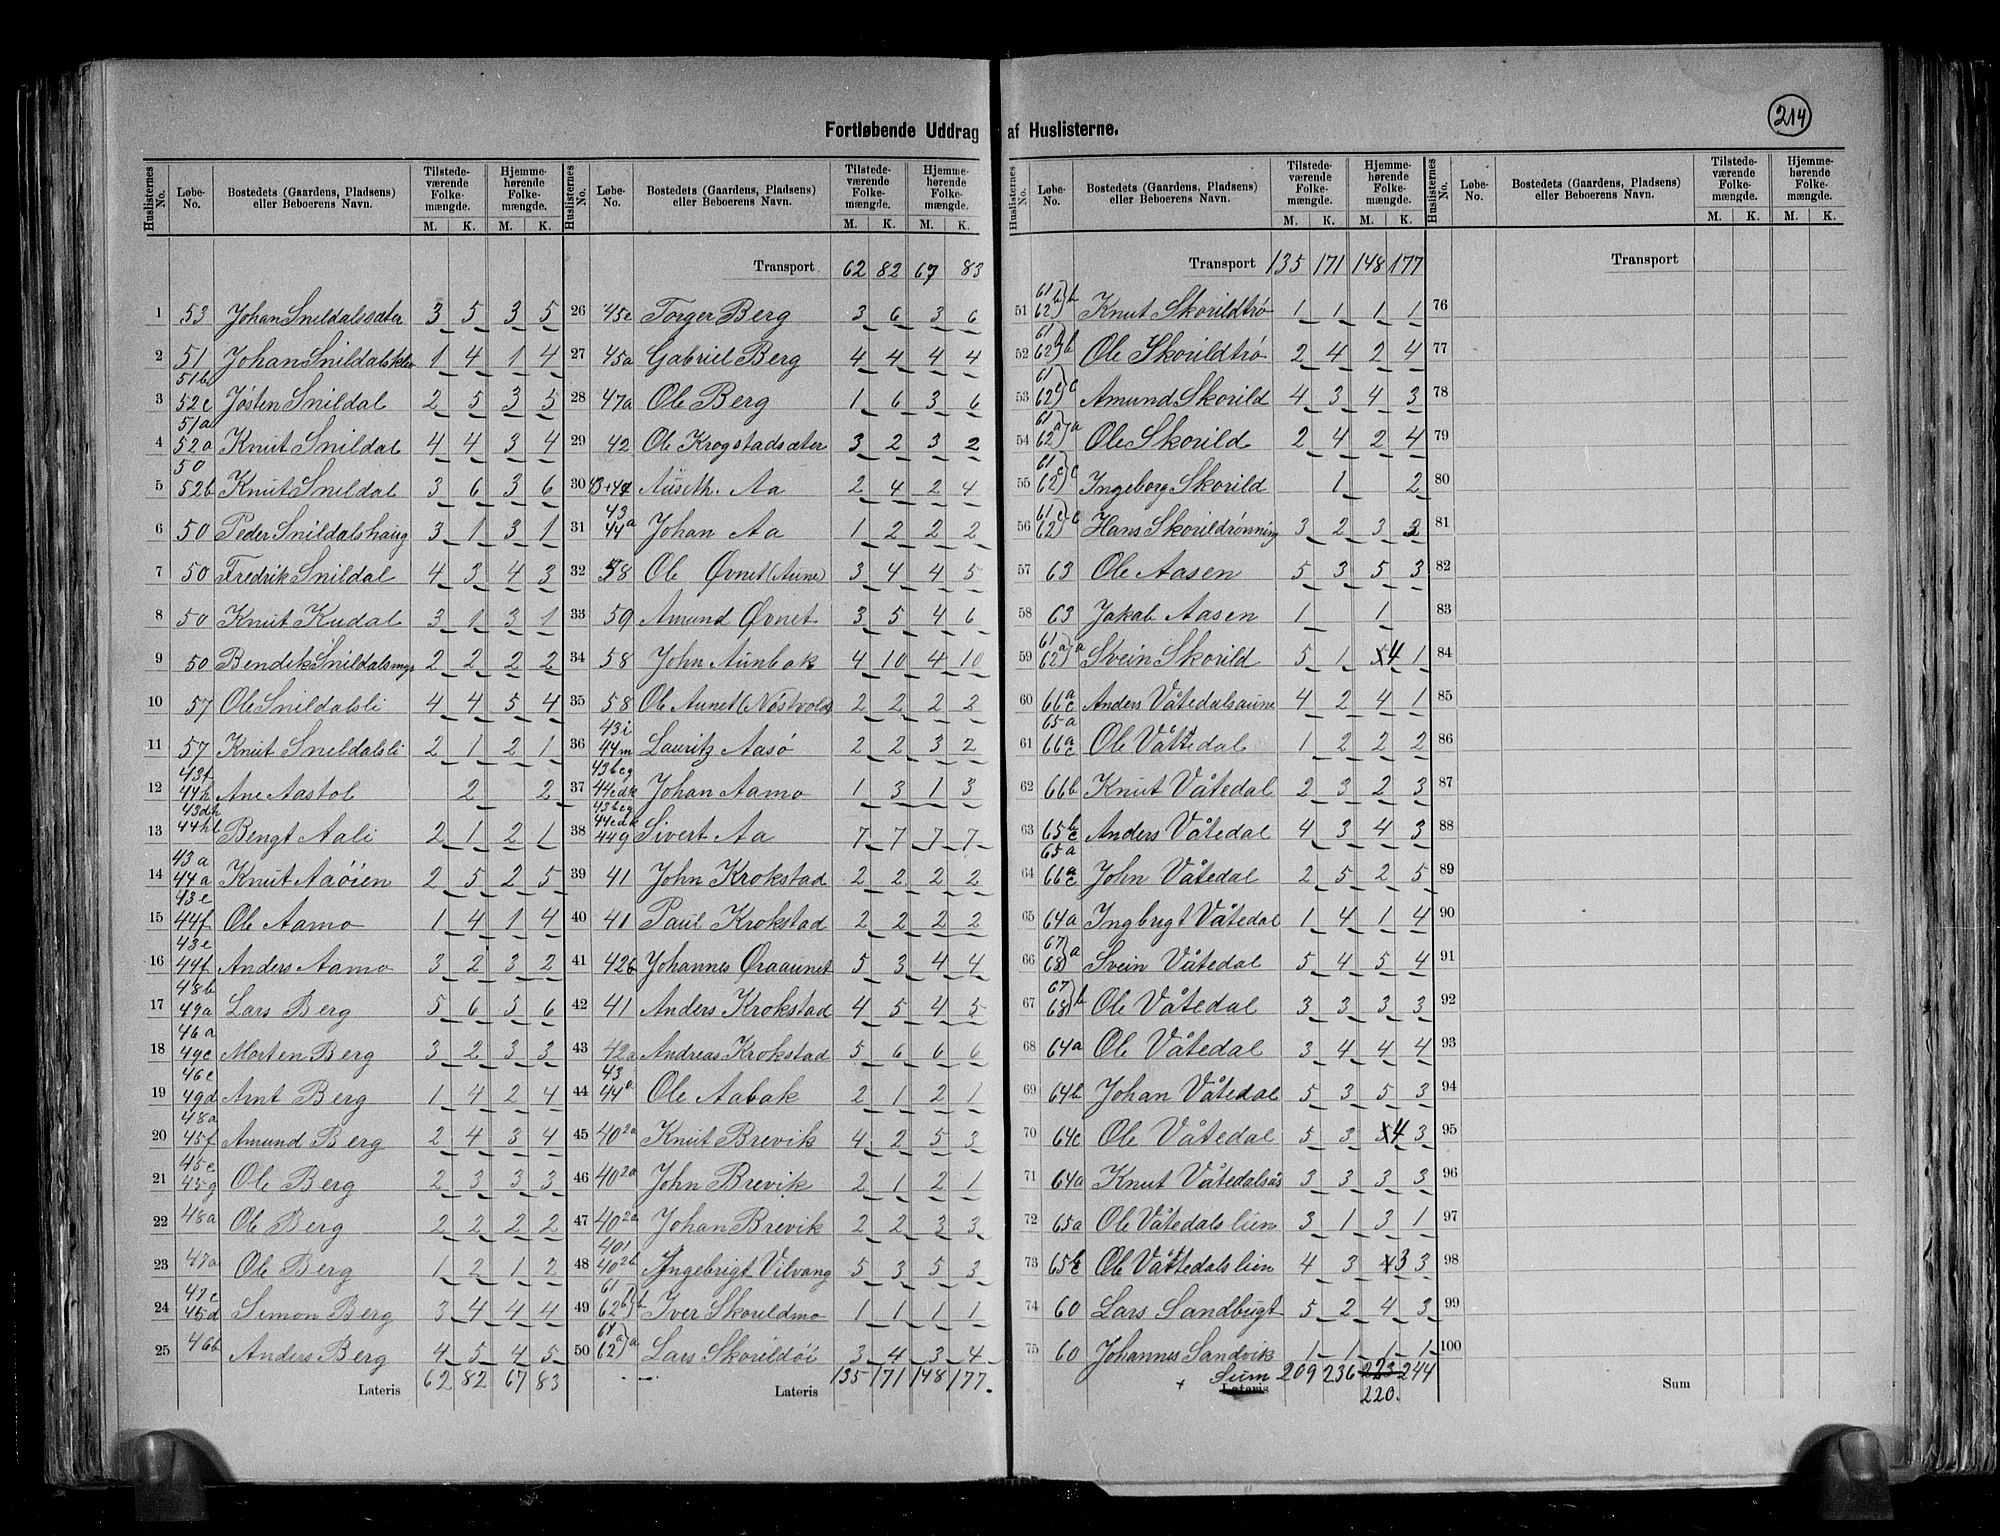 214
Fortløbende Uddrag af Huslisterne.
Huslisternes No. Løbe-No. Bostedets (Gaardens, Pladsens) eller Beboerens Navn. Tilstedeværende Folkemængde. M. K. Hjemmehørende Folkemængde. M. K.
1 53 Johan Snildalssæter 3 5 3 5
2 51 Johan Snildalsklev 1 4 1 4
3 51b 52c Jøsten Snildal 2 5 3 5
4 51a 52a Knut Snildal 4 4 3 4
5 50 52b Knut Snildal 3 6 3 6
6 50 Peder Snildalshaug 3 1 3 1
7 50 Fredrik Snildal 4 3 4 3
8 50 Knut Kudal 3 1 3 1
9 50 Bendik Snildalsmyr 2 2 2 2
10 57 Ole Snildalsli 4 4 5 4
11 57 Knut Sneldalsli 2 1 2 1
12 43f 44h Ane Aastol 2 2
13 43dh 44hl Bengt Aali 2 1 2 1
14 43a 44a Knut Aaøien 2 5 2 5
15 43e 44f Ole Aamo 1 4 1 4
16 43e 44f Anders Aamo 3 2 3 2
17 48b 49a Lars Berg 5 6 5 6
18 46a 49c Morten Berg 3 2 3 3
19 46c 49d Arnt Berg 1 4 2 4
20 48a 45f Amund Berg 2 4 3 4
21 45e 45g Ole Berg 2 3 3 3
22 48a Ole Berg 2 2 2 2
23 47a Ole Berg 1 2 1 2
24 47c 45d Simon Berg 3 4 4 4
25 46b Anders Berg 4 5 4 5
Lateris 62 82 67 83
Huslisternes No. Løbe-No. Bostedets (Gaardens, Pladsens) eller Beboerens Navn. Tilstedeværende Folkemængde. M. K. Hjemmehørende Folkemængde. M. K.
Transport 62 82 67 83
26 45c Torger Berg 3 6 3 6
27 45a Gabriel Berg 4 4 4 4
28 47a Ole Berg 1 6 3 6
29 42 Ole Krogstadsæter 3 2 3 2
30 43+44 Auseth. Aa 2 4 2 4
31 43 44a Johan Aa 1 2 2 2
32 58 Ole Øvnet (Aune) 3 4 4 5
33 59 Amund Øvnet 3 5 4 6
34 58 John Aunbak 4 10 4 10
35 58 Ole Aunet (Nöstvold) 2 2 2 2
36 43i 44m Lauritz Aasø 2 2 3 2
37 43bcg 44cdk Johan Aamo 1 3 1 3
38 43bcg 44cdk 44g Sivert Aa 7 7 7 7
39 41 John Krokstad 2 2 2 2
40 41 Paul Krokstad 2 2 2 2
41 42b Johannes Øraaunet 5 3 4 4
42 41 Anders Krokstad 4 5 4 5
43 42a Andreas Krokstad 5 6 6 6
44 43 44a Ole Aabak 2 1 2 1
45 40 2a Knut Brevik 4 2 5 3
46 40 2a John Brevik 2 1 2 1
47 40 2a Johan Brevik 2 2 3 3
48 401 40 2b Ingebrigt Vilvang 5 3 5 3
49 61 62 b) b Iver Skorildmo 1 1 1 1
50 61 62 a) a Lars Skorildöi 3 4 3 4
Lateris 135 171 148 177.
Huslisternes No. Løbe-No. Bostedets (Gaardens, Pladsens) eller Beboerens Navn. Tilstedeværende Folkemængde. M. K. Hjemmehørende Folkemængde. M. K.
Transport 135 171 148 177
51 61 62 b) b Knut Skorildtrø 1 1 1 1
52 61 62 b) b Ole Skorildtrø 2 4 2 4
53 61 62 c) c Amund Skorild 4 3 4 3
54 61 62 a) a Ole Skorild 2 4 2 4
55 61 62 c) c Ingeborg Skorild 1 2
56 61 62 c) c Hans Skorildrønning 3 2 3 3
57 63 Ole Aasen 5 3 5 3
58 63 Jakob Aasen 1 1
59 61 62 a) a Svein Skorild 5 1 5 4 1
60 66a c Anders Våtedalsaune 4 2 4 1
61 65a 66a c Ole Våttedal 1 2 2 2
62 66b Knut Våtedal 2 3 2 3
63 65b c Anders Våtedal 4 3 4 3
64 65a 66a c John Våtedal 2 5 2 5
65 64a Ingbrigt Våtedal 1 4 1 4
66 67 68) a Svein Våtedal 5 4 5 4
67 67 68) b Ole Våtedal 3 3 3 3
68 64a Ole Våtedal 3 4 4 4
69 64b Johan Våtedal 5 3 5 3
70 64c Ole Våtedal 5 3 5 4 3
71 64a Knut Våtedalsås 3 3 3 3
72 65a Ole Våtedalslien 3 1 3 1
73 65c Ole Våttedalslien 4 3 4 3 3
74 60 Lars Sandbugt 5 2 4 3
75 60 Johannes Sandvik 1 1 1 1
+ Lateris Sum 209 236 223 244
220.
Huslisternes No. Løbe-No. Bostedets (Gaardens, Pladsens) eller Beboerens Navn. Tilstedeværende Folkemængde. M. K. Hjemmehørende Folkemængde. M. K.
Transport
76
77
78
79
80
81
82
83
84
85
86
87
88
89
90
91
92
93
94
95
96
97
98
99
100
Sum